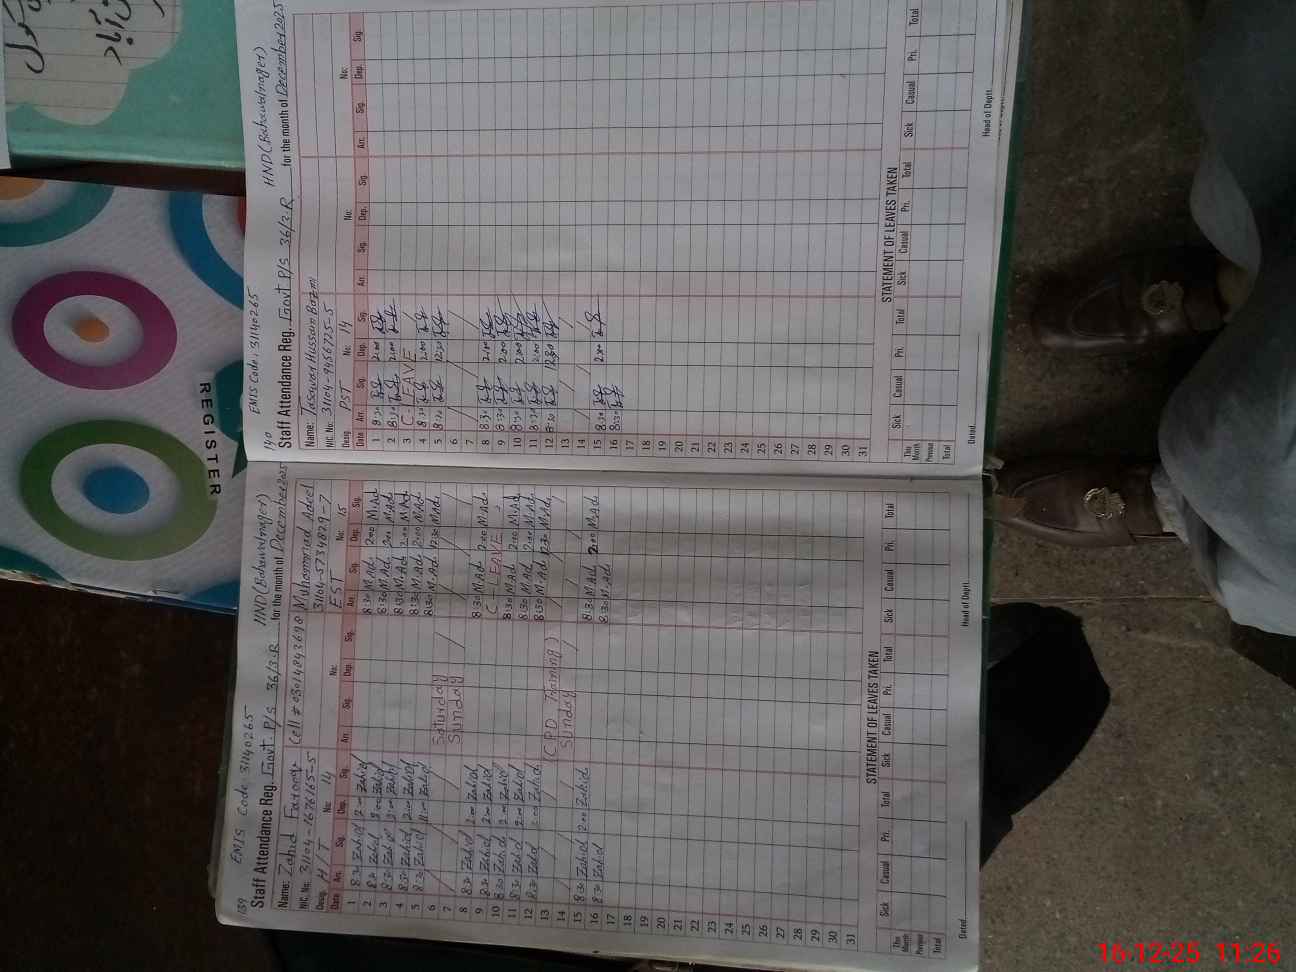 139
EMIS Code: 31140265
HND (Bahawalnager)
Staff Attendance Reg. Govt. P/S 36/3.R for the month of December 2025
Name: Zahid Farooq Cell # 03014843690 Muhammad Adeel
NIC. No: 31104-1676165-5 31104-5734829-7
Desig. H/T No: 14 No: EST No: 15
Date Arr. Sig. Dep. Sig. Arr. Sig. Dep. Sig. Arr. Sig. Dep. Sig.
1 8:30 Zahid 2:00 Zahid 8:30 M.Ad 2:00 M.Ad
2 8:30 Zahid 2:00 Zahid 8:30 M.Ad 2:00 M.Ad
3 8:30 Zahid 2:00 Zahid 8:30 M.Ad 2:00 M.Ad
4 8:30 Zahid 2:00 Zahid 8:30 M.Ad 2:00 M.Ad
5 8:30 Zahid Zahid 8:30 M.Ad 12:30 M.Ad
6 Saturday
7 Sunday
8 8:30 Zahid 2:00 Zahid 8:30 M.Ad 2:00 M.Ad
9 8:30 Zahid 2:00 Zahid C-LEAVE
10 8:30 Zahid 2:00 Zahid 8:30 M.Ad 2:00 M.Ad
11 8:30 Zahid 2:00 Zahid 8:30 M.Ad 2:00 M.Ad
12 8:30 Zahid 2:00 Zahid 8:30 M.Ad 12:30 M.Ad
13 (CPD Training)
14 Sunday
15 8:30 Zahid 2:00 Zahid 8:30 M.Ad 2:00 M.Ad
16 8:30 Zahid 8:30 M.Ad
17
18
19
20
21
22
23
24
25
26
27
28
29
30
31
STATEMENT OF LEAVES TAKEN
Sick Casual Pri. Total Sick Casual Pri. Total Sick Casual Pri. Total
The Month
Previous
Total
Dated. Head of Deptt.
140
EMIS Code: 31140265
HND (Bahawalnager)
Staff Attendance Reg. Govt P/S 36/3.R for the month of December 2025
Name: Tasawar Hussain Bazmi
NIC. No: 31104-9456725-5
Desig. PST No: 14 No: No:
Date Arr. Sig. Dep. Sig. Arr. Sig. Dep. Sig. Arr. Sig. Dep. Sig.
1 8:30 2:00
2 8:30 2:00
3 C-LEAVE
4 8:30 2:00
5 8:30 12:30
6
7
8 8:30 2:00
9 8:30 2:00
10 8:30 2:00
11 8:30 2:00
12 8:30 12:30
13
14
15 8:30 2:00
16 8:30
17
18
19
20
21
22
23
24
25
26
27
28
29
30
31
STATEMENT OF LEAVES TAKEN
Sick Casual Pri. Total Sick Casual Pri. Total Sick Casual Pri. Total
The Month
Previous
Total
Dated. Head of Deptt.
REGISTER
16-12-25 11:26